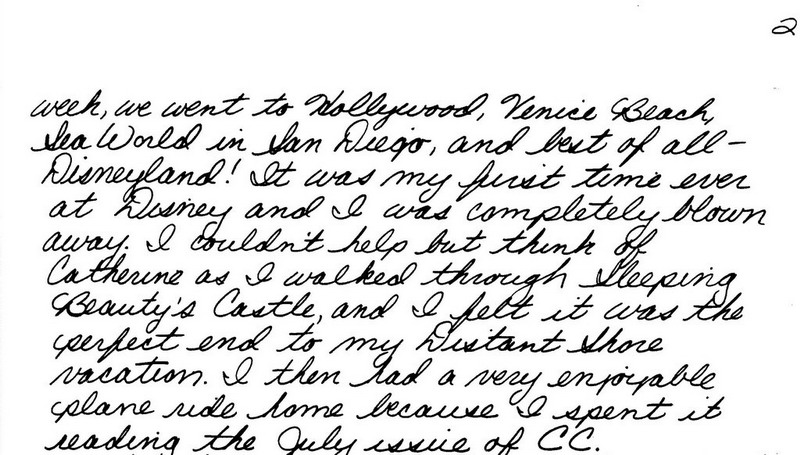 2
week, we went to Hollywood, Venice Beach,
Sea World in San Diego, and best of all -
Disneyland! It was my first time ever
at Disney and I was completely blown
away. I couldn't help but think of
Catherine as I walked through Sleeping
Beauty's Castle, and I felt it was the
perfect end to my Distant Shore
vacation. I then had a very enjoyable
plane ride home because I spent it
reading the July issue of CC.